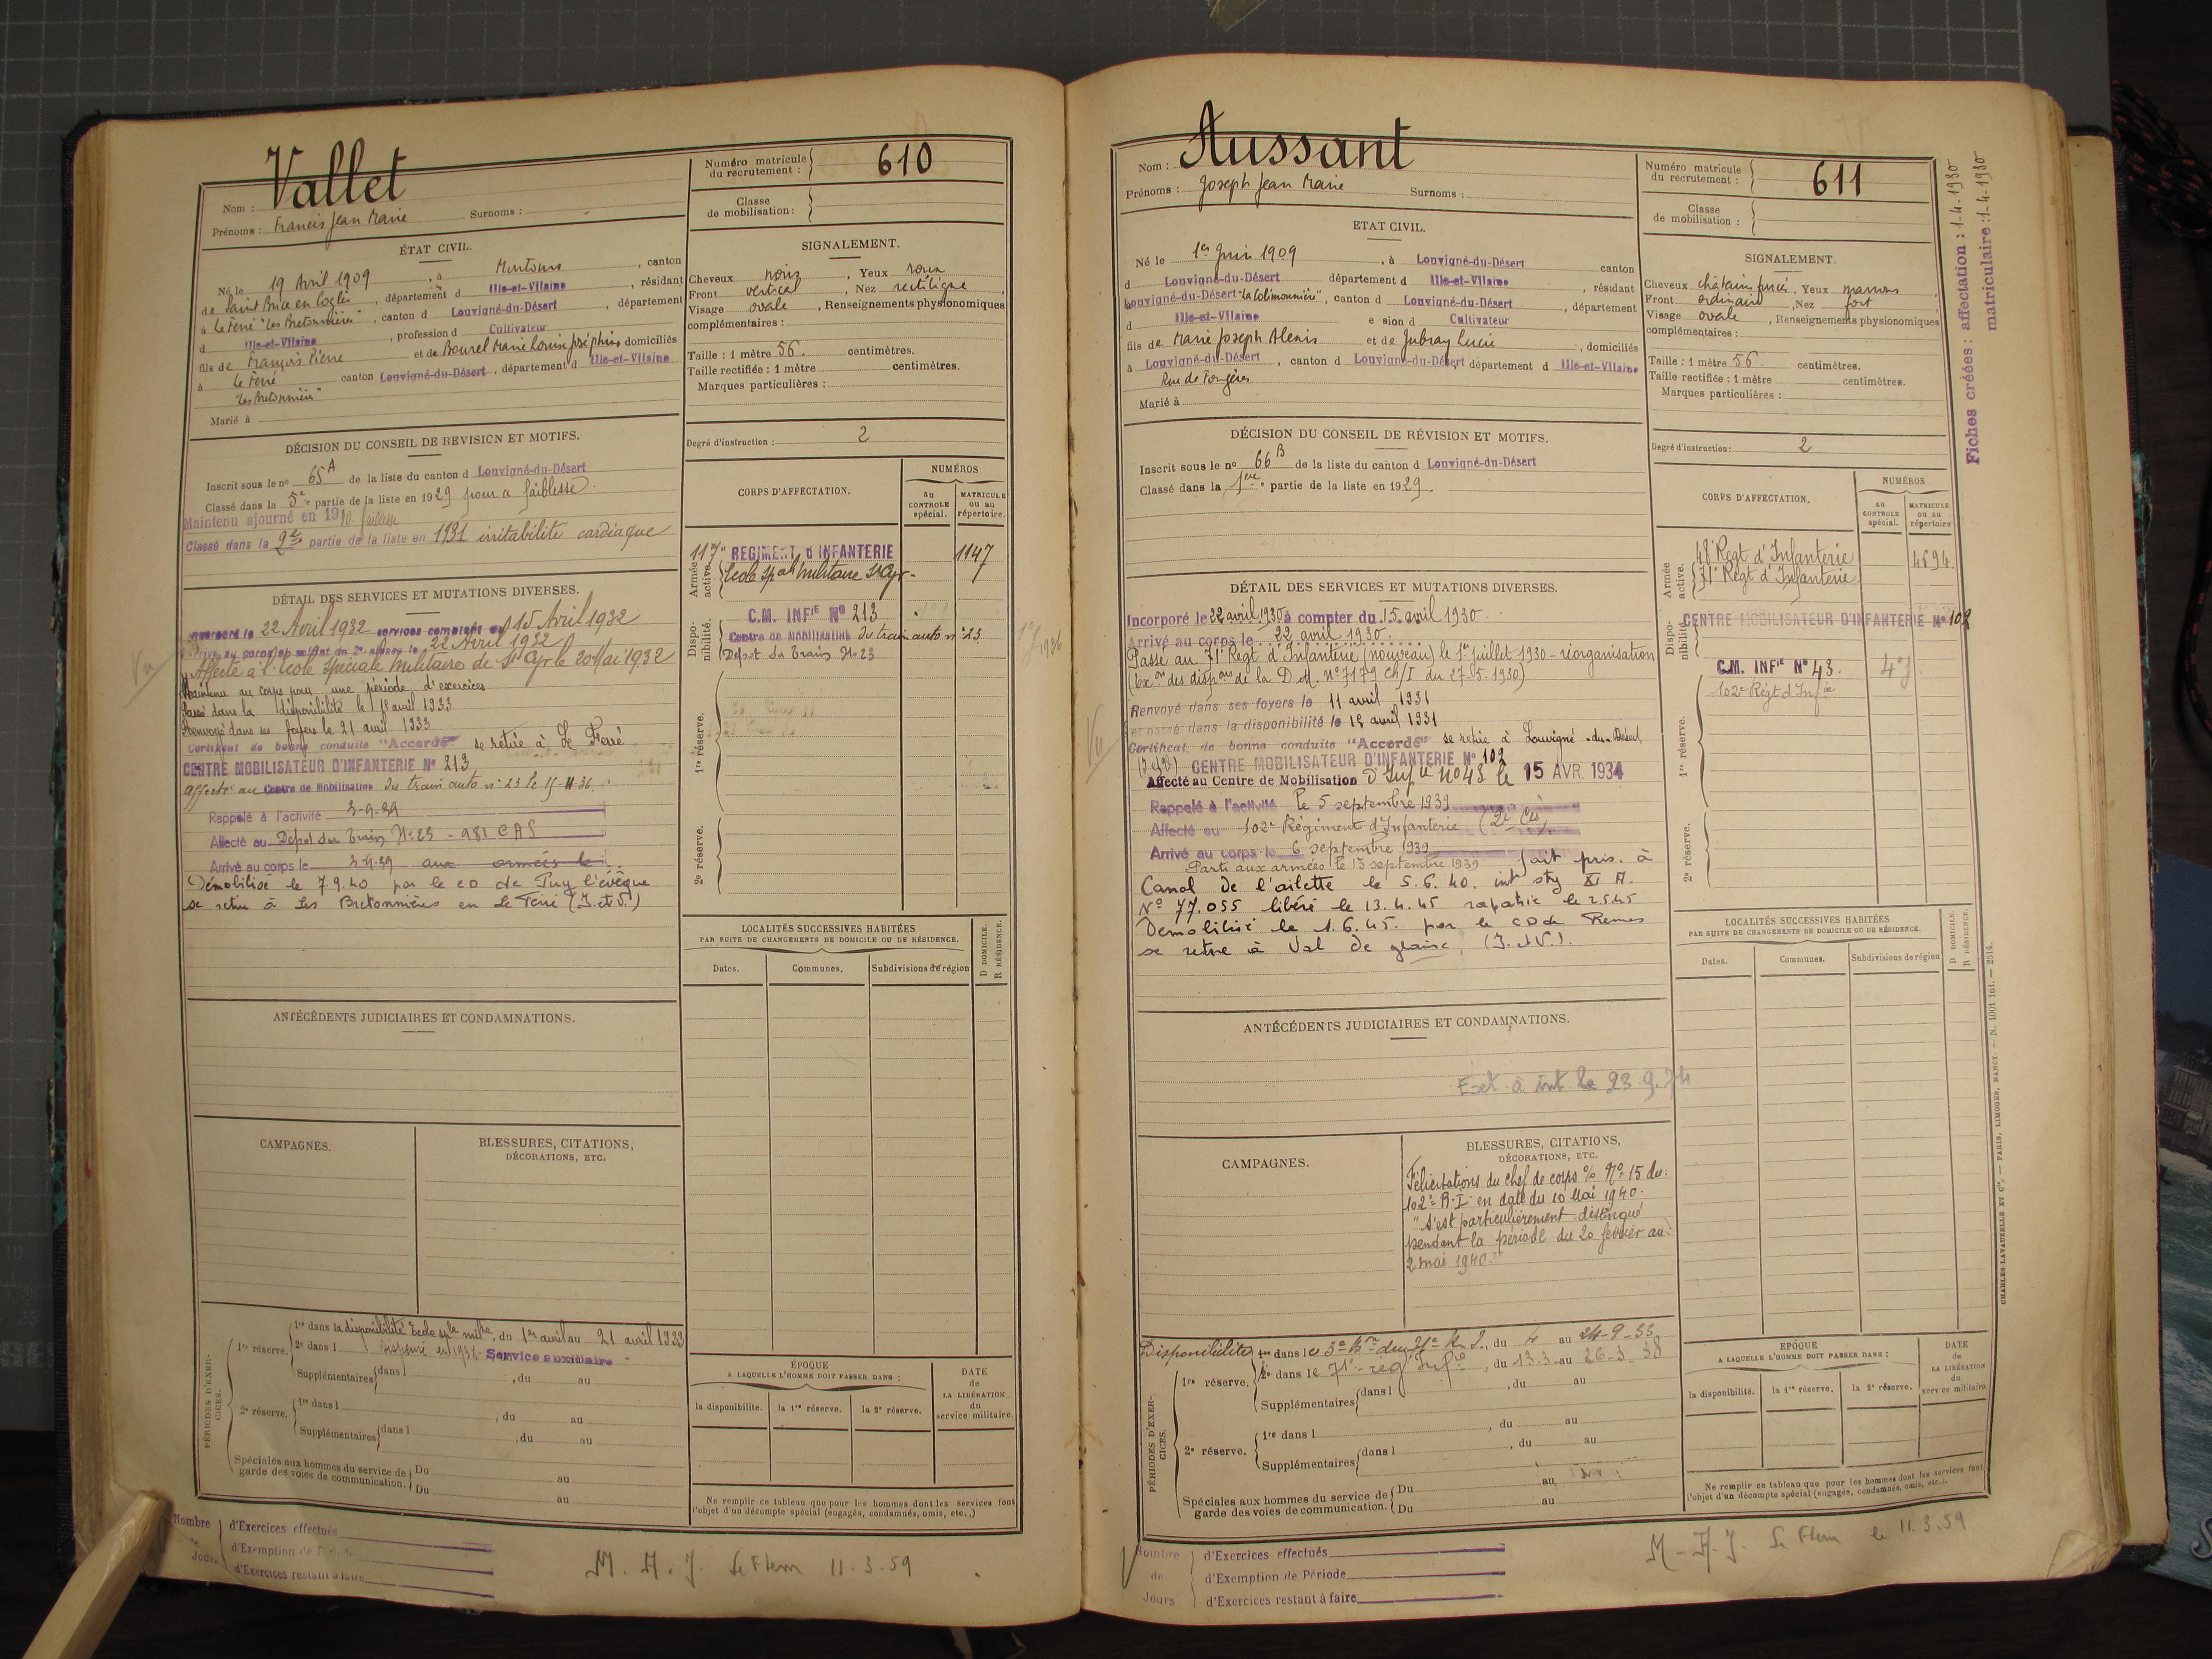 Vallet
Nom :
Prénoms : Francis Jean Marie Surnoms :
Numéro matricule du recrutement : 610
Classe de mobilisation :
ÉTAT CIVIL.
Né le 19 Avril 1909, à canton
de Saint Brice en Coglès, département d Ille-et-Vilaine, résidant
à Le Ferré "Les Bretonnières", canton d Louvigné-du-Désert, département
d Ille-et-Vilaine, profession d Cultivateur
fils de François Pierre et de Bourel Marie Louise Joséphine domiciliés
à Le Ferré canton Louvigné-du-Désert, département d Ille-et-Vilaine
"Les Bretonnières"
Marié à
SIGNALEMENT.
Cheveux noirs, Yeux roux
Front vertical, Nez rectiligne,
Visage ovale, Renseignements physionomiques
complémentaires :
Taille : 1 mètre 56. centimètres.
Taille rectifiée : 1 mètre centimètres.
Marques particulières :
Degré d'instruction : 2
DÉCISION DU CONSEIL DE REVISION ET MOTIFS.
Inscrit sous le no 65A de la liste du canton d Louvigné-du-Désert
Classé dans la 5e partie de la liste en 1929 pour faiblesse.
Maintenu ajourné en 1930 faiblesse
Classé dans la 2e partie de la liste en 1931 irritabilité cardiaque
CORPS D'AFFECTATION.
NUMÉROS
au CONTROLE spécial.
MATRICULE ou au répertoire.
Armée active.
117e REGIMENT d'INFANTERIE 1147
Ecole spale Militaire St Cyr-
Disponibilité.
C.M. INFIE No 213
Centre de Mobilisation du train auto no 23
Depot du Train No 23
1re réserve.
2e réserve.
DÉTAIL DES SERVICES ET MUTATIONS DIVERSES.
22 Avril 1932 services comptant du 15 Avril 1932
Arrivé au corps et soldat de 2e classe le 22 Avril 1932
Affecté à l'école spéciale militaires de St Cyr le 20 Mai 1932
Maintenu au corps pour une période d'exercices
Passé dans la disponibilité le 1er avril 1933
Renvoyé dans ses foyers le 21 avril 1933
Certificat de bonne conduite "Accordé" se retire à Le Ferré
CENTRE MOBILISATEUR D'INFANTERIE No 213
Affecté au Centre de Mobilisation du train auto no 23 le 15-11-36.
Rappelé à l'activité 3-9-39
Affecté au Depot du Train No 23 - 981 CAS
Arrivé au corps le 3-9-39 aux armées le
Démobilisé le 7.9.40 par le CD de Puy l'évêque
se retire à Les Bretonnières en Le Ferré (I. et V.)
LOCALITÉS SUCCESSIVES HABITÉES
PAR SUITE DE CHANGEMENTS DE DOMICILE OU DE RÉSIDENCE.
Dates. Communes. Subdivisions de région
D DOMICILE.
R RÉSIDENCE.
ANTÉCÉDENTS JUDICIAIRES ET CONDAMNATIONS.
CAMPAGNES.
BLESSURES, CITATIONS,
DÉCORATIONS, ETC.
PÉRIODES D'EXERCICES.
1re réserve. 1re dans la disponibilité Ecole sple milre, du 1er avril au 21 avril 1933
2e dans l Service auxiliaire
Supplémentaires dans l , du au
2e réserve. 1re dans l , du au
Supplémentaires dans l , du au
Spéciales aux hommes du service de garde des voies de communication. Du au
Du au
ÉPOQUE
A LAQUELLE L'HOMME DOIT PASSER DANS :
la disponibilité. la 1re réserve. la 2e réserve.
DATE de LA LIBÉRATION du service militaire.
Ne remplir ce tableau que pour les hommes dont les services font
l'objet d'un décompte spécial (engagés, condamnés, omis, etc.,)
Nombre de Jours
d'Exercices effectués
d'Exemption de Période
d'Exercices restant à faire
M. A. J. Le Flem 11-3-59
Aussant
Nom :
Prénoms : Joseph Jean Marie Surnoms :
Numéro matricule du recrutement : 611
Classe de mobilisation :
Fiches créées : affectation : 1-4-1930
matriculaire : 1-4-1930
ETAT CIVIL.
Né le 1er Juin 1909, à Louvigné-du-Désert canton
d Louvigné-du-Désert département d Ille-et-Vilaine, résidant
Louvigné-du-Désert "La Colimonnière", canton d Louvigné-du-Désert, département
d Ille-et-Vilaine e sion d Cultivateur
fils de Marie Joseph Alexis et de Jubray Lucie, domiciliés
à Louvigné-du-Désert, canton d Louvigné-du-Désert département d Ille-et-Vilaine
Rue de Fougères
Marié à
SIGNALEMENT.
Cheveux châtains foncés, Yeux marrons,
Front ordinaire, Nez fort
Visage ovale, Renseignements physionomiques
complémentaires :
Taille : 1 mètre 56. centimètres.
Taille rectifiée : 1 mètre centimètres.
Marques particulières :
Degré d'instruction : 2
DÉCISION DU CONSEIL DE RÉVISION ET MOTIFS.
Inscrit sous le no 66B de la liste du canton d Louvigné-du-Désert
Classé dans la 1ère partie de la liste en 1929.
CORPS D'AFFECTATION.
NUMÉROS
au CONTROLE spécial.
MATRICULE ou au répertoire
Armée active.
48e Régt d'Infanterie 4694
71e Régt d'Infanterie
Disponibilité.
CENTRE MOBILISATEUR D'INFANTERIE No 102
C.M. INFIE No 43. 47
102e Régt d'Infie
1re réserve.
2e réserve.
DÉTAIL DES SERVICES ET MUTATIONS DIVERSES.
Incorporé le 22 avril 1930 à compter du 15 avril 1930.
Arrivé au corps le 22 avril 1930.
Passé au 71e Régt d'Infanterie (nouveau) le 1er juillet 1930 - réorganisation
(Exon des dispons de la D.M. no 7179 Ch/I du 27.05.1930)
Renvoyé dans ses foyers le 11 avril 1931
et passé dans la disponibilité le 15 avril 1931
Certificat de bonne conduite "Accordé" se retire à Louvigné-du-Désert
(I et V) CENTRE MOBILISATEUR D'INFANTERIE No 102
Affecté au Centre de Mobilisation d'Infie No 43 le 15 AVR. 1934
Rappelé à l'activité le 5 septembre 1939
Affecté au 102e Régiment d'Infanterie (2e Cie)
Arrivé au corps le 6 septembre 1939
Parti aux armées le 13 septembre 1939 fait pris. à
Canal de l'ailette le 5.6.40. int stg XI A.
No 77.055 libéré le 13.4.45 rapatrié le 2.5.45
Démobilisé le 1.6.45. par le CD de Rennes
se retire à Val de glaine, (I. et V.).
LOCALITÉS SUCCESSIVES HABITÉES
PAR SUITE DE CHANGEMENTS DE DOMICILE OU DE RÉSIDENCE.
Dates. Communes. Subdivisions de région
D DOMICILE.
R RÉSIDENCE.
ANTÉCÉDENTS JUDICIAIRES ET CONDAMNATIONS.
Ext. à int. le 23.9.74
CAMPAGNES.
BLESSURES, CITATIONS,
DÉCORATIONS, ETC.
Félicitations du chef de corps % No 15 du
102e R-I- en date du 10 Mai 1940.
"s'est particulièrement distingué
pendant la période du 20 février au
2 mai 1940."
PÉRIODES D'EXERCICES.
Disponibilité 1re dans le 3e Bon du 71e R.I., du 4 au 24-9-33
1re réserve. 2e dans le 71e reg Infie, du 13.3 au 26-3-38
Supplémentaires dans l , du au
2e réserve. 1re dans l , du au
Supplémentaires dans l , du au
Spéciales aux hommes du service de garde des voies de communication. Du au
Du au
EPOQUE
A LAQUELLE L'HOMME DOIT PASSER DANS :
la disponibilité. la 1re réserve. la 2e réserve.
DATE de LA LIBÉRATION du service militaire
Ne remplir ce tableau que pour les hommes dont les services font
l'objet d'un décompte spécial (engagés, condamnés, omis, etc.).
CHARLES-LAVAUZELLE ET Cie. — PARIS, LIMOGES, NANCY. — N. 1001 int. — 2514.
Nombre de Jours
d'Exercices effectués
d'Exemption de Période
d'Exercices restant à faire
M-A-J. Le Flem le 11.3.59